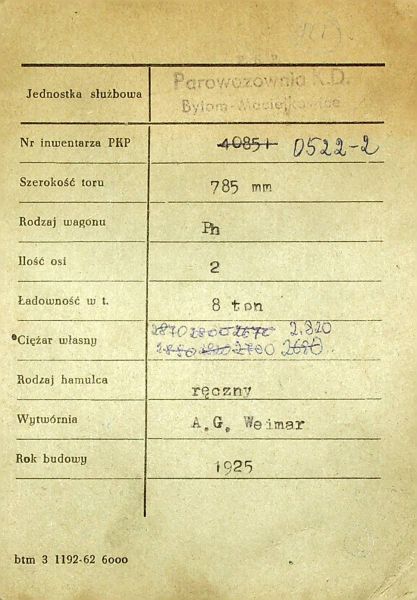 Jednostka służbowa
Parowozownia K.D.
Bytom-Maciejkowice
Nr inwentarza PKP 40851 0522-2
Szerokość toru 785 mm
Rodzaj wagonu Ph
Ilość osi 2
Ładowność w t. 8 ton
2870 2800 2670 2.820
Ciężar własny
2700 2680
Rodzaj hamulca ręczny
Wytwórnia A.G. Weimar
Rok budowy 1925
btm 3 1192-62 6000